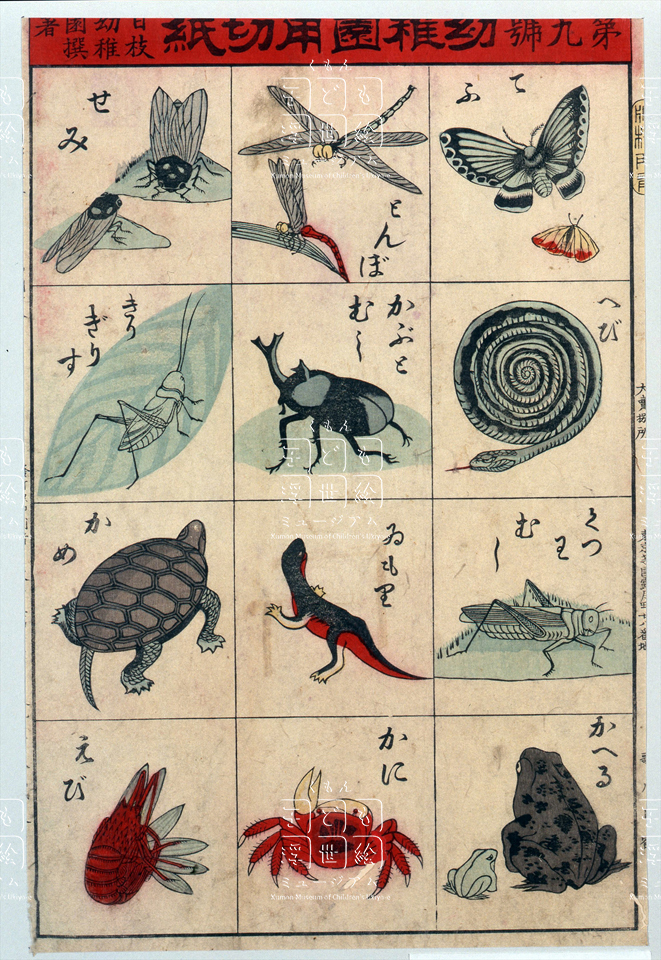 第九號 幼稚園用切紙
日枝
幼稚
園撰
著
てふ
とんぼ
せみ
へび
かぶと
むし
きり
ぎり
す
くつ
わ
むし
ゐもり
かめ
かへる
かに
えび
くもん
子ども
浮世絵
ミュージアム
Kumon Museum of Children's Ukiyo-e